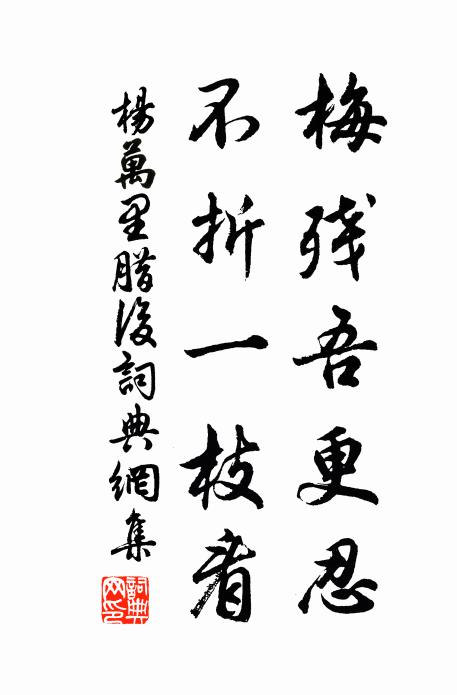 梅残吾更忍
不折一枝看
楊萬里腊後詞典網集
詞典網印